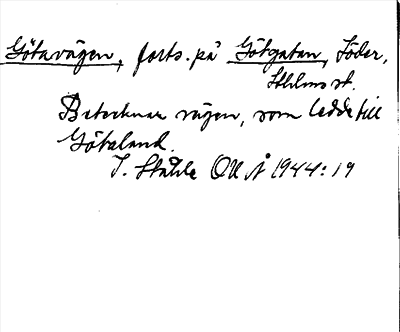 Götavägen, forts. på Götgatan, Söder,
Sthlms st.
Betecknar vägen, som ledde till
Götaland.
I. Ståhle OUÅ 1944:19